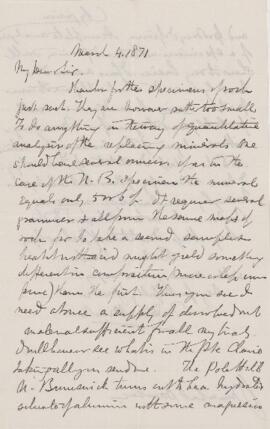 March 4, 1871
My Dear Sir,
Thanks for the specimens of rock
just sent. They are however rather too small
To do anything in the way of quantitative
analysis of the replacing minerals one
should have several ounces if as in the
case of the N. B. specimen the mineral
equals only, 5 or 6 p. It requires several
grammes & all from the same mass of
rock for to take a second sample
treat it and might yield something
different in composition more or less
than the first. Thus you see I
need at once a supply of
material sufficient for all my trials.
I will however see what is in the Pte Claire
The Pole Hill
N. Brunswick turns out to be a hydrated
silicate of alumina with some magnesia